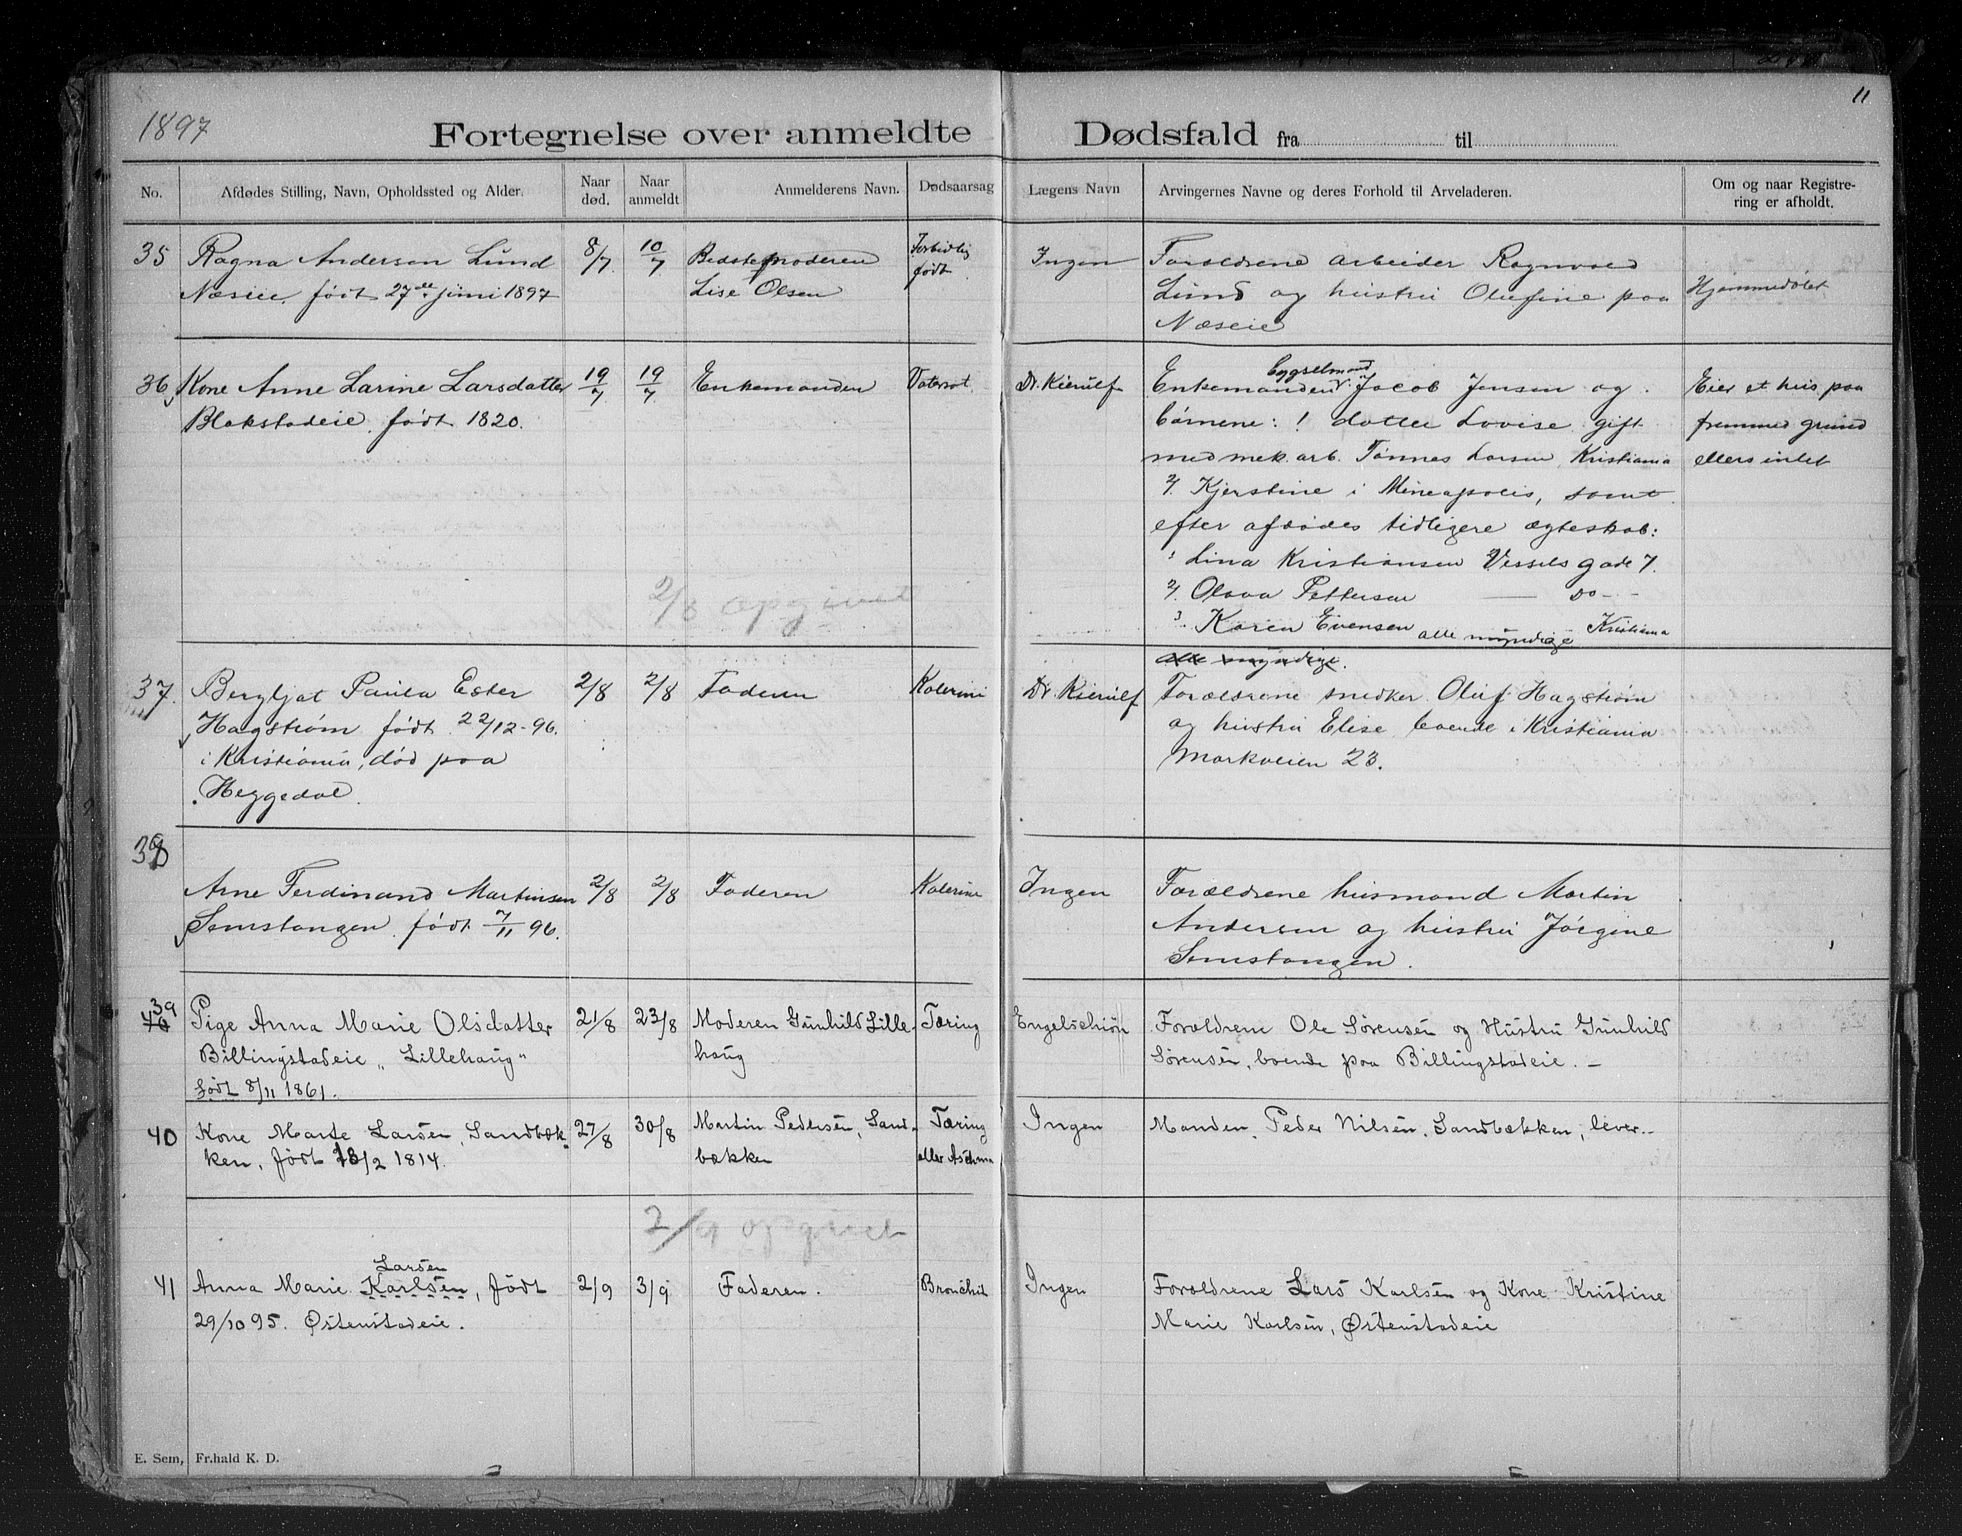 11
1897
Fortegnelse over anmeldte Dødsfald fra til
No. Afdødes Stilling, Navn, Opholdssted og Alder. Naar død. Naar anmeldt Anmelderens Navn. Dødsaarsag Lægens Navn Arvingernes Navne og deres Forhold til Arveladeren. Om og naar Registrering er afholdt.
35 Ragna Andersen Lund 8/7 10/7 Bedstemoderen født Ingen Forældrene arbeider Ragnvald
Næseie. født 27de juni 1897 Lise Olsen Lund og hustru Olufine paa Hjemmedøbt
Næseie
36 Kone Anne Larine Larsdatter 19/7 19/7 Enkemanden Vatersot Dr. Kierulf Enkemanden Jacob Jensen og Eier et hus paa
Blakstadeie. født 1820. børnene: 1 datter Lovise gift fremmed grund
med mek. arb. Tønnes Larsen, Kristiania ellers intet
2. Kjerstine i Mineapolis, samt
efter afdødes tidligere ægteskab:
1 Lina Kristiansen Vessels gade 7.
2/8 opgivet 2. Olava Pettersen — do —
3. Karen Evensen alle myndige Kristiania
alle myndige.
37. Bergljot Paula Ester 2/8 2/8 Faderen Kolerini Dr. Kierulf Forældrene snedker Oluf Hagstrøm
Hagstrøm født 22/12-96. og hustru Elise boende i Kristiania
i Kristiania, død paa Markveien 23.
Heggedal.
38
Arne Ferdinand Martinsen 2/8 2/8 Faderen Kolerine Ingen Forældrene husmand Martin
Semstangen. født 7/11 96. Andersen og hustru Jørgine
Semstangen.
39 40 Pige Anna Marie Olsdatter 21/8 23/8 Moderen Gunhild Lille- Tæring Engelschiøn Forældrene Ole Sørensen og Hustru Gunhild
Billingstadeie „Lillehaug" haug Sørensen, boende paa Billingstadeie. –
født 8/11 1861.
40 Kone Marte Larsen, Sandbæk- 27/8 30/8 Martin Pedersen, Sand- Tæring Ingen Manden, Peder Nilsen, Sandbækken, lever.-
ken, født 13/2 1814. bækken eller Asthma
2/9 opgivet
Larsen
41 Anna Marie Karlsen, født 2/9 3/9 Faderen. Bronchit Ingen Forældrene Lars Karlsen og Kone Kristine
29/10 95. Østenstadeie. Marie Karlsen, Østenstadeie
E. Sem, Fr.hald K. D.